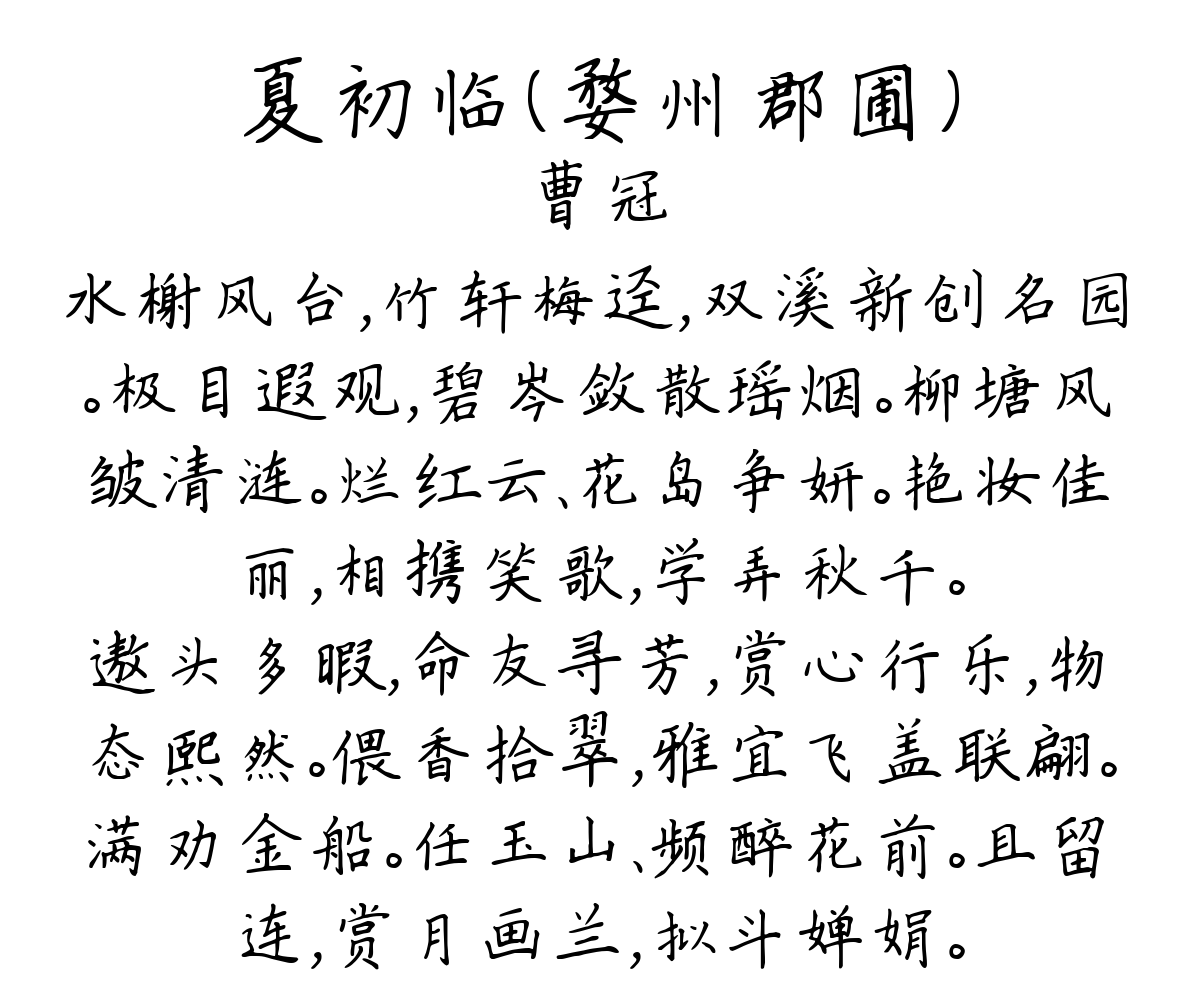 夏初临(婺州郡圃)
曹冠
水榭风台,竹轩梅迳,双溪新创名园
。极目遐观,碧岑敛散瑶烟。柳塘风
皱清涟。烂红云、花岛争妍。艳妆佳
丽,相携笑歌,学弄秋千。
遨头多暇,命友寻芳,赏心行乐,物
态熙然。偎香拾翠,雅宜飞盖联翩。
满劝金船。任玉山、频醉花前。且留
连,赏月画兰,拟斗婵娟。